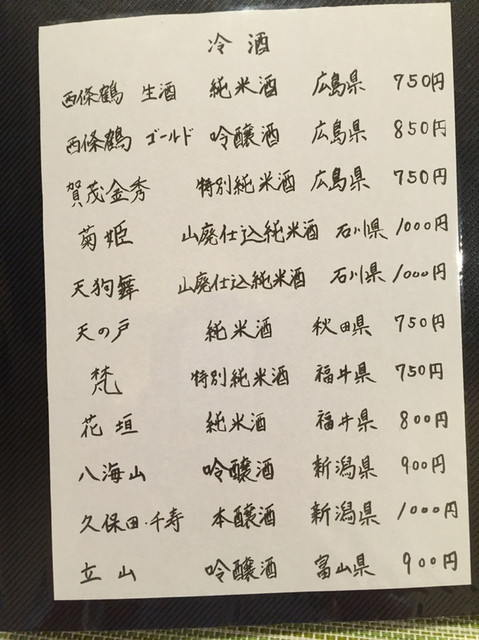 冷酒
西條鶴 生酒 純米酒 広島県 750円
西條鶴 ゴールド 吟醸酒 広島県 850円
賀茂金秀 特別純米酒 広島県 750円
菊姫 山廃仕込純米酒 石川県 1000円
天狗舞 山廃仕込純米酒 石川県 1000円
天の戸 純米酒 秋田県 750円
梵 特別純米酒 福井県 750円
花垣 純米酒 福井県 800円
八海山 吟醸酒 新潟県 900円
久保田・千寿 本醸酒 新潟県 1000円
立山 吟醸酒 富山県 900円